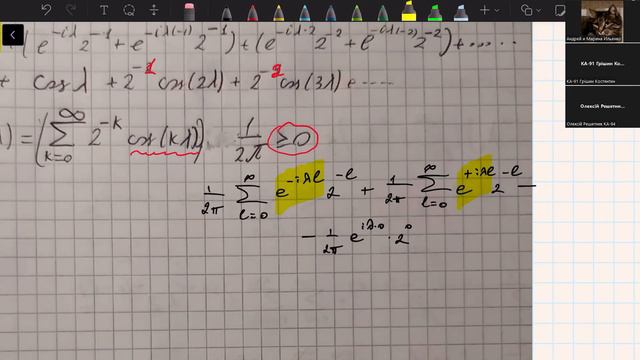 (e^{-iλ} 2^{-1} + e^{-iλ(-1)} 2^{-1}) + (e^{-iλ·2} 2^{-2} + e^{-iλ(-2)} 2^{-2}) + .....
+ cos λ + 2^{-1} cos(2λ) + 2^{-2} cos(3λ) + .....
) = (∑_{k=0}^{∞} 2^{-k} cos(kλ)) 1/2π ≥ 0
1/2π ∑_{l=0}^{∞} e^{-iλl} 2^{-l} + 1/2π ∑_{l=0}^{∞} e^{+iλl} 2^{-l} −
− 1/2π e^{iλ·0} · 2^0
Андрей и Марина Ильенко
КА-91 Грішин Ко...
КА-91 Грішин Костянтин
Олексій Решетник...
Олексій Решетник КА-94